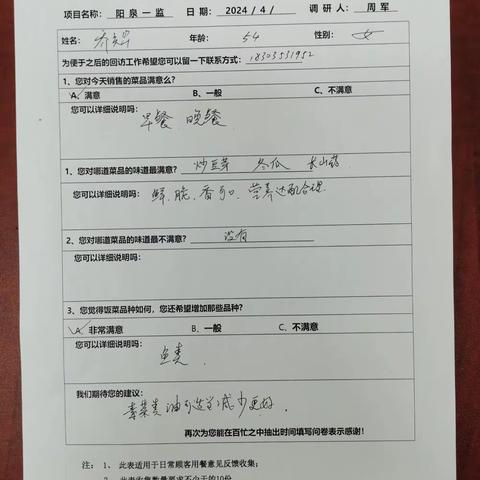 项目名称： 阳泉一监 日 期： 2024 / 4 / 调 研 人： 周 军
姓名： 年龄： 54 性别： 女
为便于之后的回访工作希望您可以留一下联系方式： 18303531952
1、您对今天销售的菜品满意么？
A、满意 B、一般 C、不满意
您可以详细说明吗：
早餐 晚餐
1、您对哪道菜品的味道最满意？ 炒豆芽 冬瓜 长山药
您可以详细说明吗： 鲜、脆、香可口、营养搭配合理
2、您对哪道菜品的味道最不满意？ 没有
您可以详细说明吗：
3、您觉得饭菜品种如何，您还希望增加那些品种？
A、非常满意 B、一般 C、不满意
您可以详细说明吗：
鱼类
我们期待您的建议：
素菜类油可适当减少更好。
再次为您能在百忙之中抽出时间填写问卷表示感谢！
注： 1、 此表适用于日常顾客用餐意见反馈收集；
此表收集数量要求不少于的10份